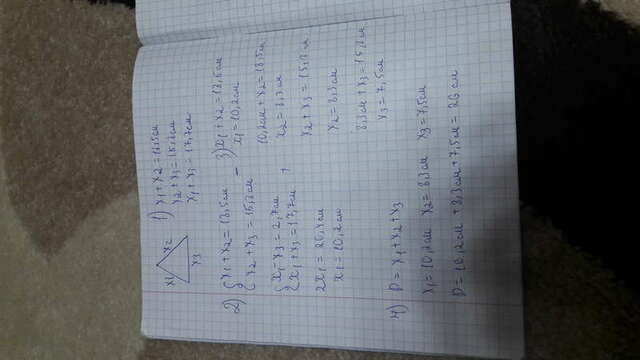 x1
x2
x3
1) x1 + x2 = 18,5см
x2 + x3 = 15,8см
x1 + x3 = 17,7см
2) { x1 + x2 = 18,5см
{ x2 + x3 = 15,8см –
{ x1 – x3 = 2,7см
{ x1 + x3 = 17,7см +
2x1 = 20,4см
x1 = 10,2см
3) x1 + x2 = 18,5см
x1 = 10,2см
10,2см + x2 = 18,5см
x2 = 8,3см
x2 + x3 = 15,8см
x2 = 8,3см
8,3см + x3 = 15,8см
x3 = 7,5см
4) P = x1 + x2 + x3
x1 = 10,2см x2 = 8,3см x3 = 7,5см
P = 10,2см + 8,3см + 7,5см = 26см